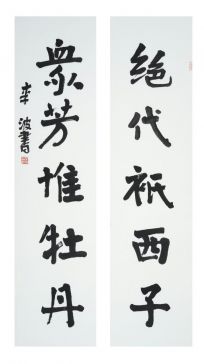 绝代祇西子
眾芳惟牡丹
李波書